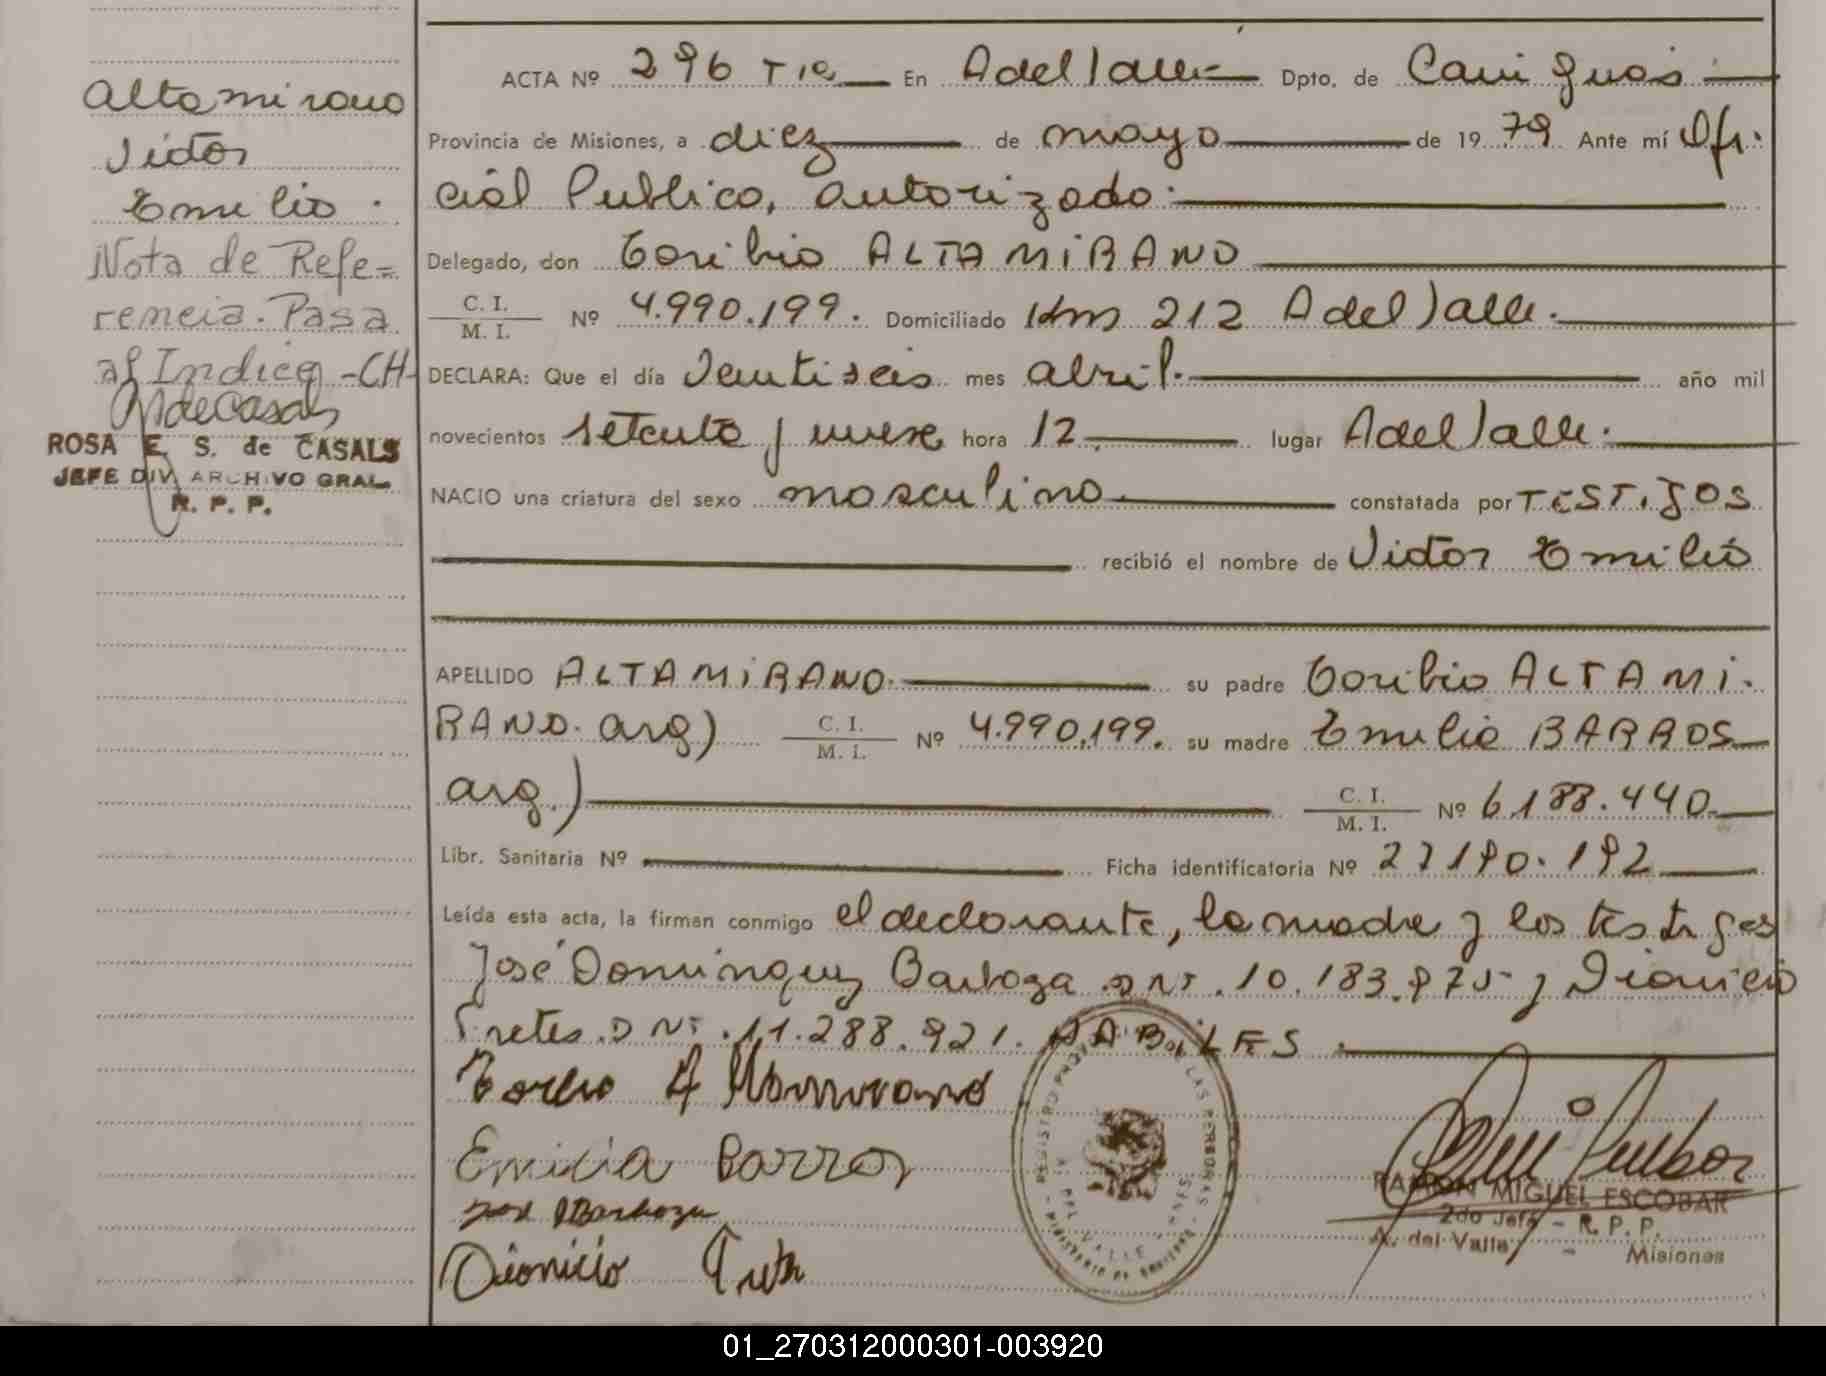 Altamirano
Victor
Emilio.
Nota de Refe=
rencia. Pasa
al Indice -CH-
ROSA E. S. de CASALS
JEFE DIV. ARCHIVO GRAL.
R. P. P.
ACTA Nº 296 En A del Valle Dpto. de Cainguás
Provincia de Misiones, a diez de mayo de 19 79 Ante mí Ofi.
cial Publico, autorizado.
Delegado, don Toribio ALTAMIRANO
C. I. / M. I. Nº 4.990.199. Domiciliado Km 212 A del Valle.
DECLARA: Que el día veintiseis mes abril. año mil
novecientos setenta y nueve hora 12. lugar A del Valle.
NACIO una criatura del sexo masculino constatada por TESTIGOS
recibió el nombre de Victor Emilio
APELLIDO ALTAMIRANO su padre Toribio ALTAMI.
RANO. arg) C. I. / M. I. Nº 4.990.199. su madre Emilia BARROS
arg.) C. I. / M. I. Nº 6.188.440
Libr. Sanitaria Nº Ficha identificatoria Nº 27190.192
Leída esta acta, la firman conmigo el declarante, la madre y los testigos
José Dominguez Barboza DNI. 10.183.975 y Dionicio
Fretes. DNI. 11.288.921. HABILES.
Emilia Barros
Dionicio
REGISTRO PROV. DE LAS PERSONAS
RAMON MIGUEL ESCOBAR
2do Jefe - R. P. P.
A. del Valle - Misiones
01_270312000301-003920